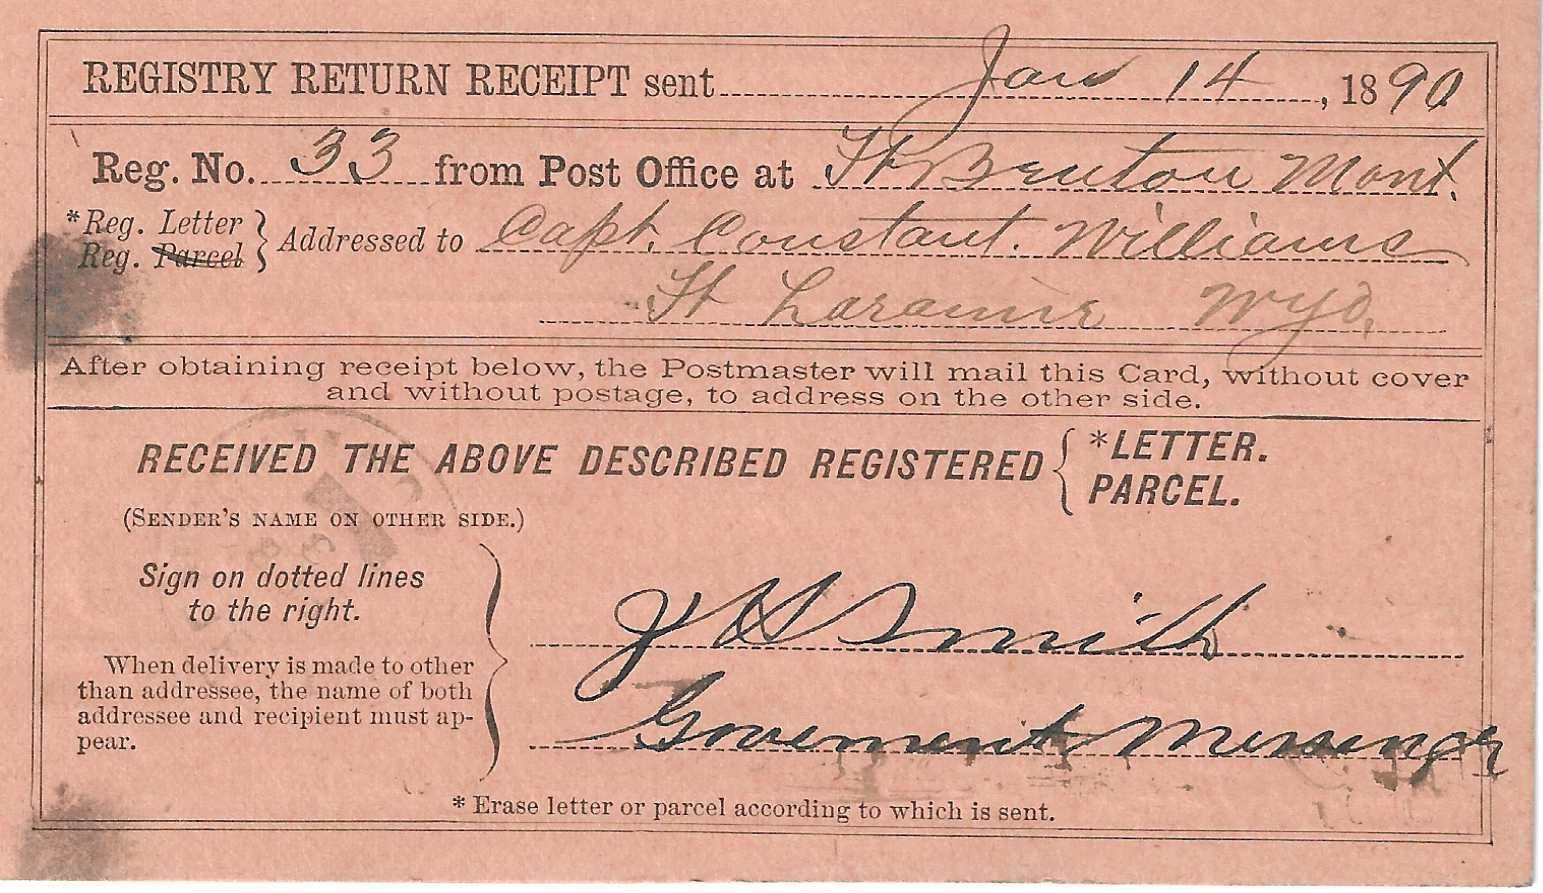 REGISTRY RETURN RECEIPT sent Jan 14, 1890
Reg. No. 33 from Post Office at Ft Benton Mont.
*Reg. Letter
Reg. Parcel
Addressed to Capt. Constant. Williams
Ft Laramie Wyo.
After obtaining receipt below, the Postmaster will mail this Card, without cover
and without postage, to address on the other side.
RECEIVED THE ABOVE DESCRIBED REGISTERED
*LETTER.
PARCEL.
(SENDER'S NAME ON OTHER SIDE.)
Sign on dotted lines
to the right.
When delivery is made to other
than addressee, the name of both
addressee and recipient must ap-
pear.
J H Smith
Goverment Messenger
* Erase letter or parcel according to which is sent.